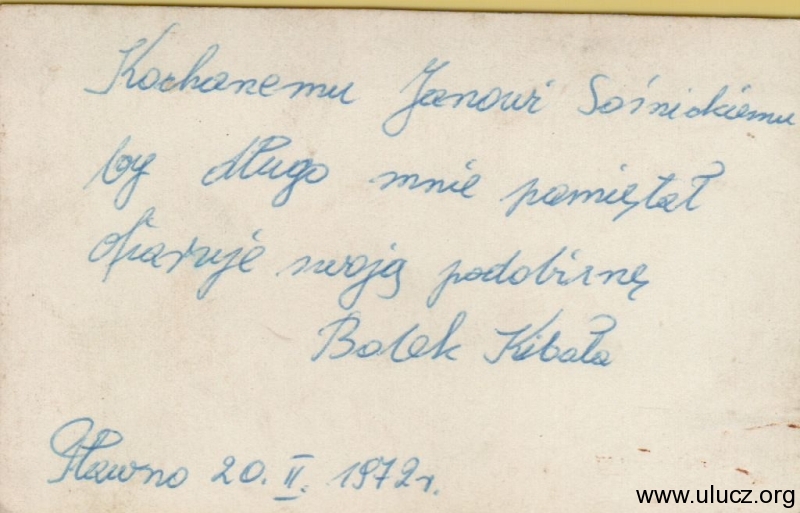 Kochanemu Janowi Sośnickiemu
by długo mnie pamiętał
ofiaruje swoją podobiznę
Bolek Kibała
Pławno 20. II. 1972r.
www.ulucz.org